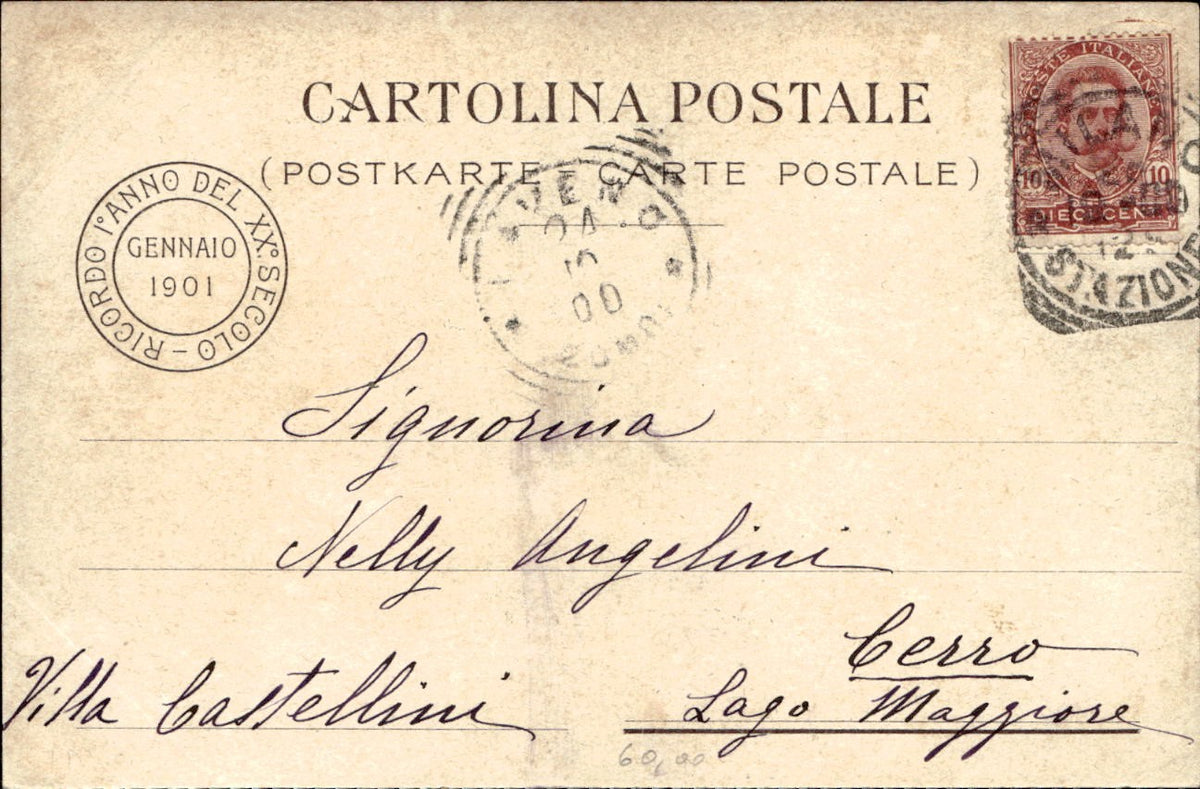 CARTOLINA POSTALE
(POSTKARTE – CARTE POSTALE)
RICORDO I° ANNO DEL XX° SECOLO –
GENNAIO
1901
POSTE ITALIANE
10 10
DIECI CENT
STAZIONE
12
00
Signorina
Nelly Angelini
Cerro
Villa Castellini
Lago Maggiore
60,00